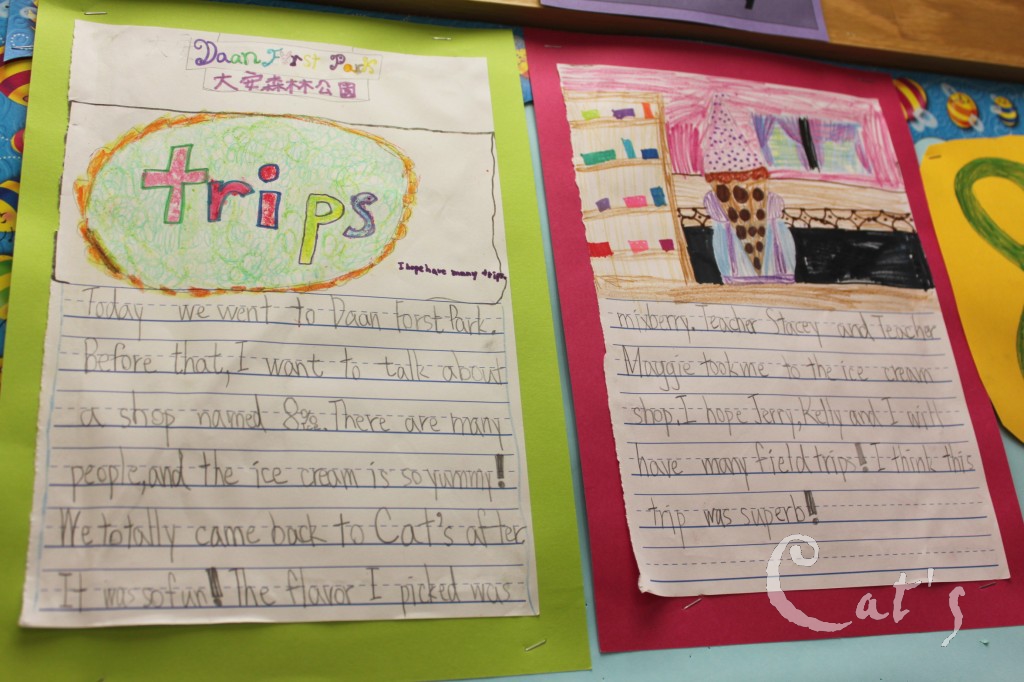 Daan Forst Park
大安森林公園
trips
I hope have many trips
Today we went to Daan Forst Park.
Before that, I want to talk about
a shop named 8%. There are many
people, and the ice cream is so yummy!
We totally came back to Cat's after
It was so fun!! The flavor I picked was
mixberry. Teacher Stacey and Teacher
Maggie took me to the ice cream
shop. I hope Jerry, Kelly and I will
have many field trips! I think this
trip was superb!!
Cat's